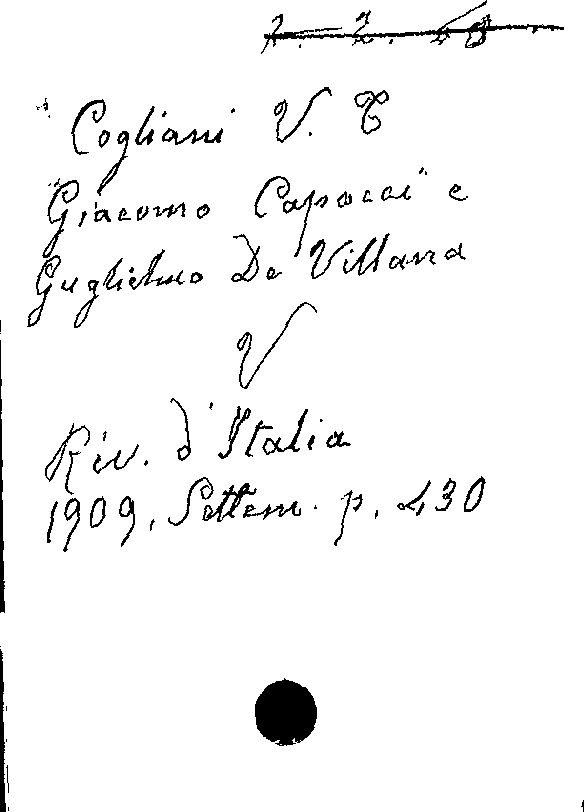 Cogliani V. T
Giacomo Capocci e
Guglielmo De Villana
V
Riv. d'Italia
1909, Settem. p. 430